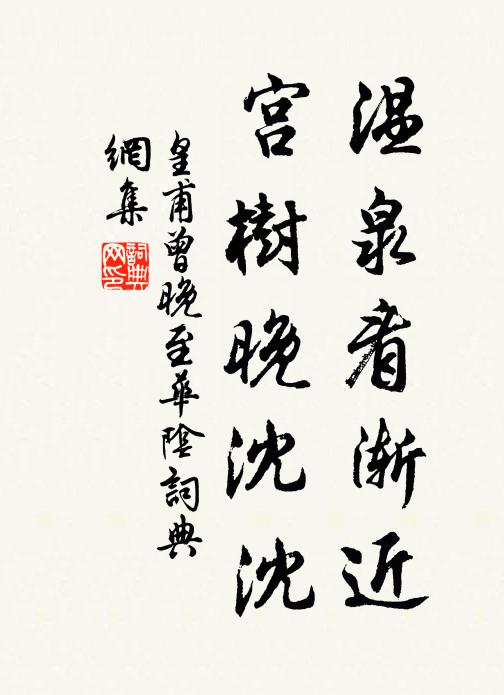 温泉看渐近
宫樹晚沈沈
皇甫曾晚至華陰詞典
網集
詞典
网印